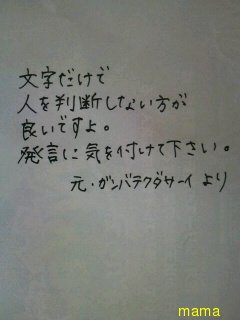 文字だけで
人を判断しない方が
良いですよ。
発言に気を付けて下さい。
元・ガンバテクダサーイ より
mama